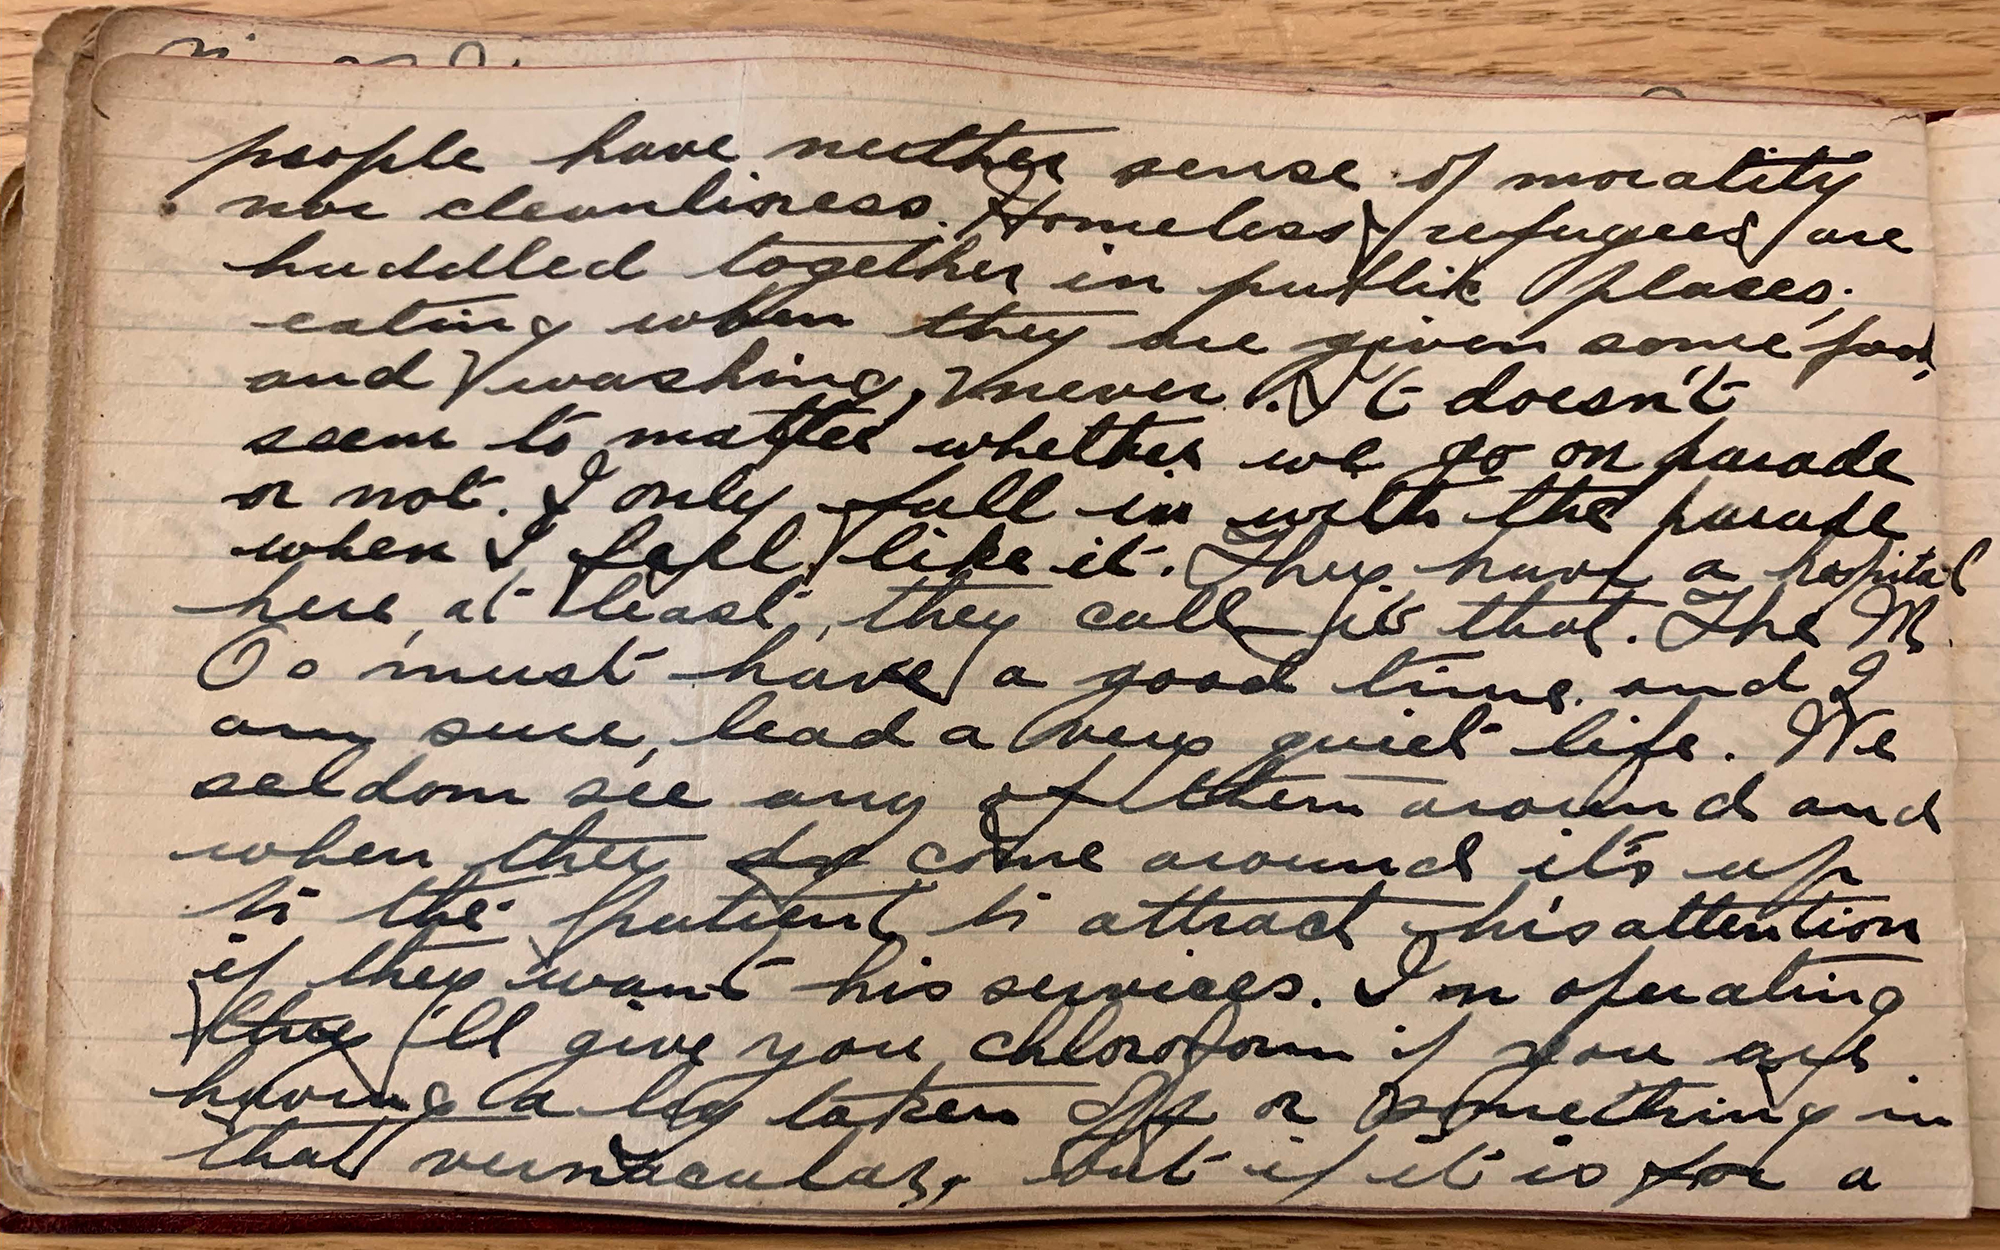 people have neither sense of morality
nor cleanliness. Homeless refugees are
huddled together in public places,
eating when they are given some food,
and washing, never. It doesn't
seem to matter whether we go on parade
or not. I only fall in with the parade
when I feel like it. They have a hospital
here, at least, they call it that. The M.
Os must have a good time, and I
am sure, lead a very quiet life. We
seldom see any of them around and
when they do come around it's up
to the patient to attract his attention
if they want his services. In operating
they'll give you chloroform if you are
having a leg taken off or something in
that vernacular, but if it is for a